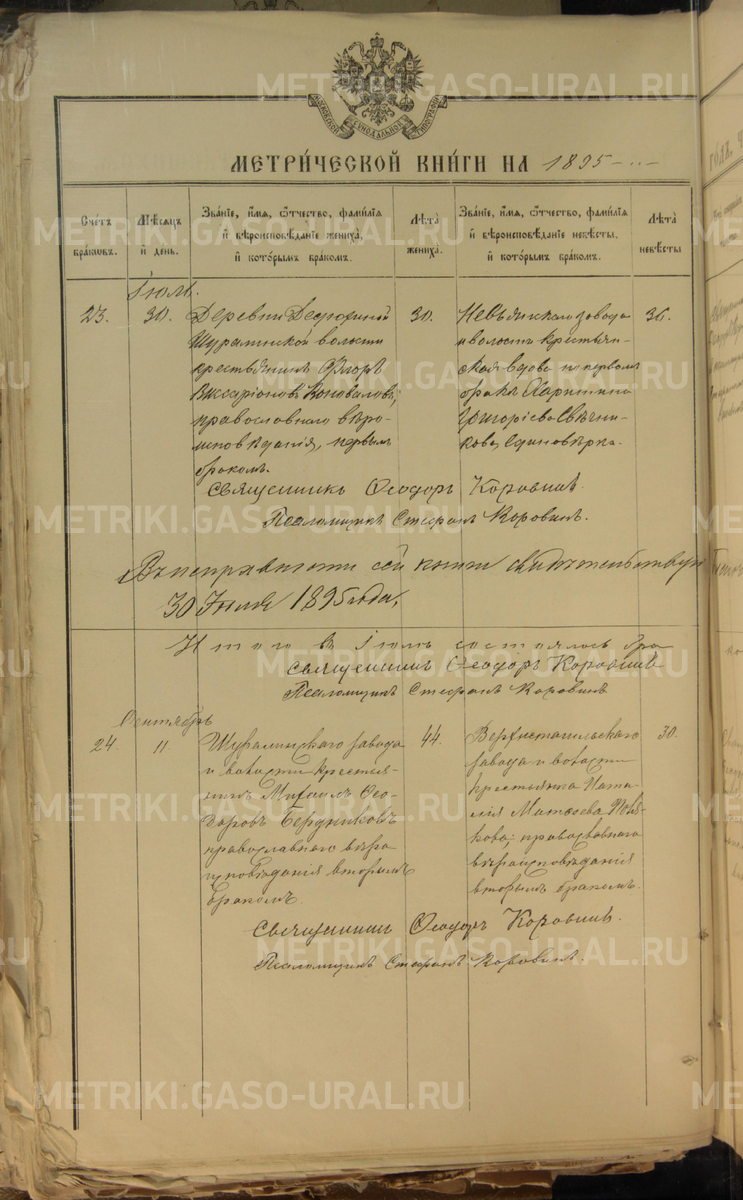 МОСКОВСКОЙ СУНОДАЛЬНОЙ ТИПОГРАФІИ
МЕТРИ́ЧЕСКОЙ КНИ́ГИ НА 1895
Сче́тъ бра́ковъ.
Мѣ́сѧцъ и҆ де́нь.
Зва́нїе, и҆́мѧ, ѻ҆́тчество, фами́лїѧ
и҆ вѣроисповѣ́данїе жениха̀,
и҆ кото́рымъ бра́комъ.
Лѣта̀ жениха̀.
Зва́нїе, и҆́мѧ, ѻ҆́тчество, фами́лїѧ
и҆ вѣроисповѣ́данїе невѣ́сты,
и҆ кото́рымъ бра́комъ.
Лѣта̀ невѣ́сты
Іюль.
23.
30.
Деревни
Шуралинской волости
крестьянинъ Флоръ
Виссаріоновъ Коноваловъ,
православнаго вѣро-
исповѣданія, первымъ
бракомъ.
30.
Невьянскаго завода
и волости крестьян-
ская вдова по первом
бракѣ Харитина
Григоріева Свѣчни-
кова, единовѣрка.
36.
Священникъ Ѳеодоръ Коровинъ
Псаломщикъ Стефанъ Коровинъ.
Въ исправности сей книги свидѣтельствую
30 Іюля 1895 года,
Итого въ Іюлѣ состоялось бра
Священникъ Ѳеодоръ Коровинъ
Псаломщикъ Стефанъ Коровинъ
Сентябрь
24.
11.
Шуралинскаго завода
и волости крестья-
нинъ Михаилъ Ѳео-
доровъ Бердниковъ
православнаго вѣро
исповѣданія вторымъ
бракомъ.
44.
Верхнетагильскаго
завода и волости
крестьянка Ната-
лія Матѳеева
кова, православнаго
вѣроисповѣданія
вторымъ бракомъ.
30.
Священникъ Ѳеодоръ Коровинъ.
Псаломщикъ Стефанъ Коровинъ.
METRIKI.GASO-URAL.RU